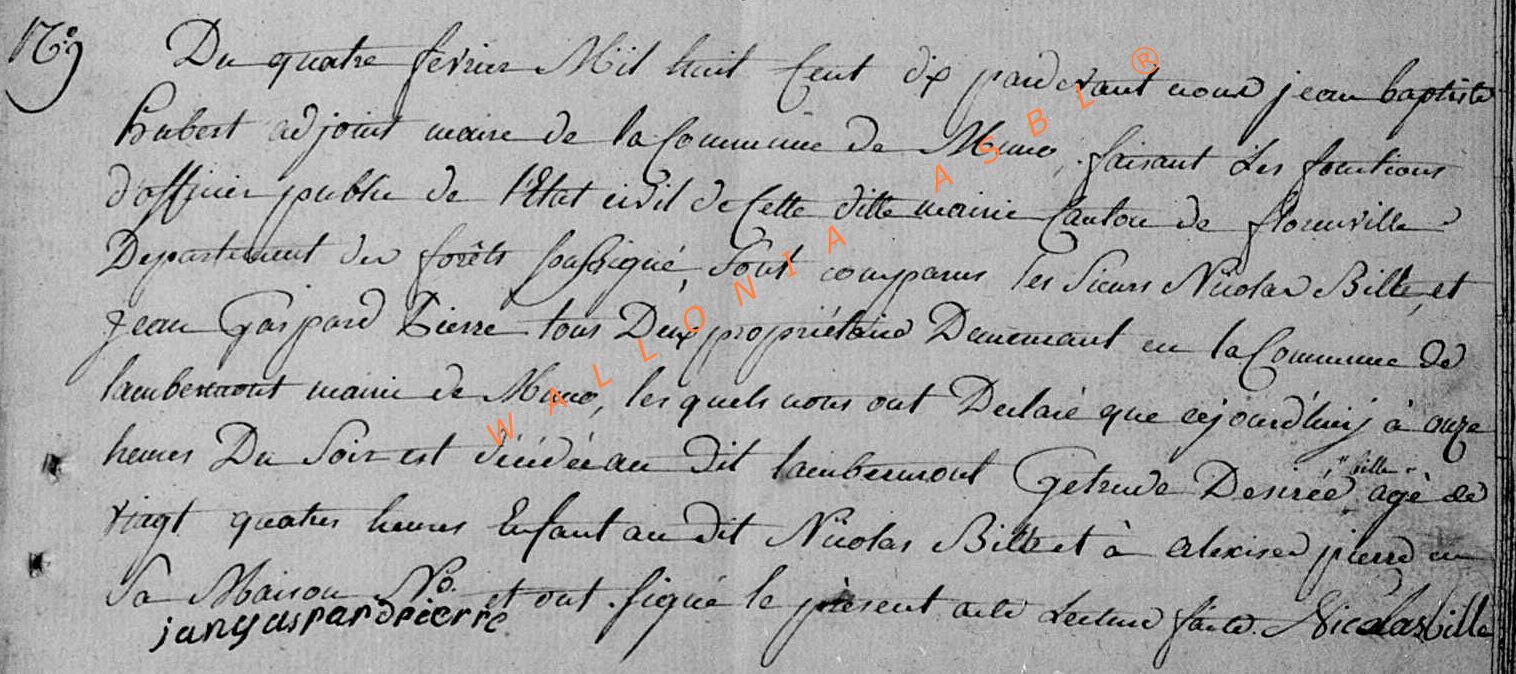 N.º 9
Du quatre fevrier Mil huit Cent dix pardevant nous jean baptiste
hubert adjoint maire de la Commune de Muno, faisant Les fonctions
d'officier public de l'Etat civil de Cette ditte mairie Canton de florenville
Departement des forêts soussigné, Sont comparus les Sieurs Nicolas Bille, et
Jean Gaspard Pierre tous Deux propriétaire Demeurant en la Commune de
lambermont mairie de Muno, les quels nous ont Declaré que cejourd'huij à onze
heures Du Soir est décédée au dit lambermont Getrude Desirée " bille " agé de
vingt quatres heures Enfant au dit Nicolas Bille et à alexise pierre en
Sa Maison N.º et ont signé le présent acte Lecture faite. Nicolas bille
jangaspardpierre
WALLONIA ASBL ®